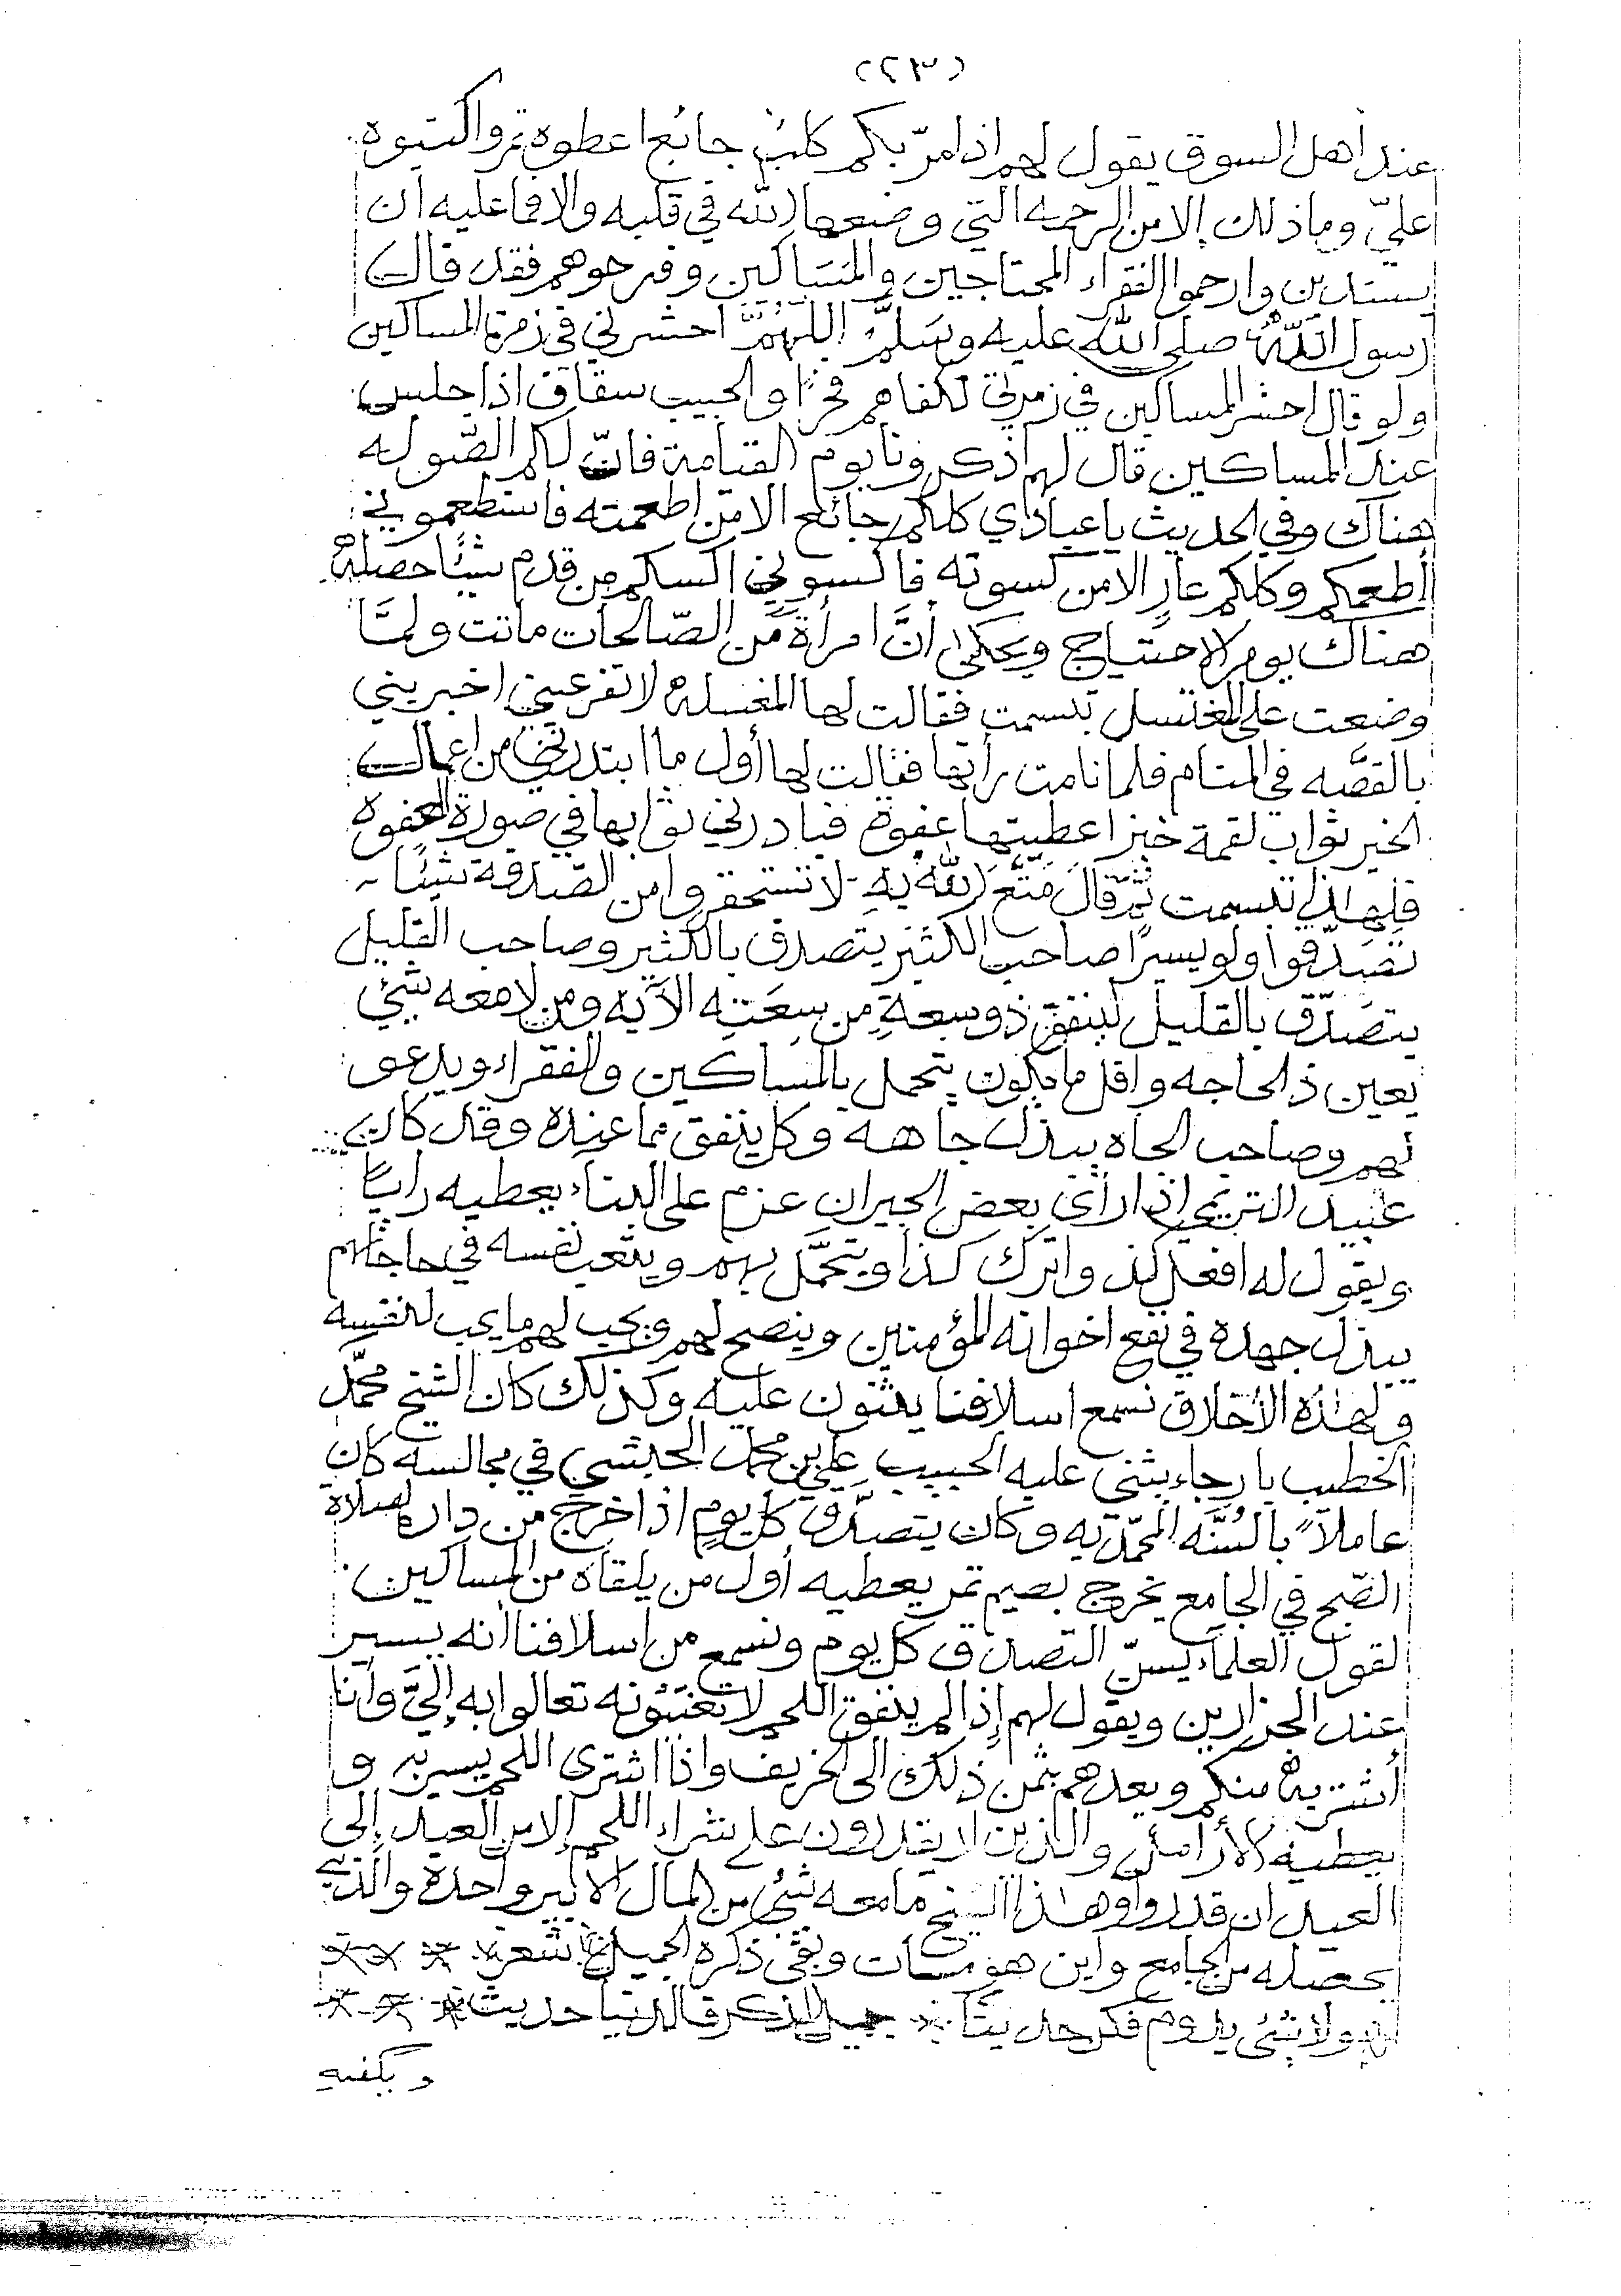 (٢٣)
عند أهل السوق يقول لهم اذا مرّ بكم كلبٌ جائع اعطوه تمر واكتبوه
عليّ وما ذلك إلا من الرحمه التي وضعها الله في قلبه والا فما عليه ان
يستدين وارحموا الفقراء المحتاجين والمسَاكين وفرحوهم فقد قال
رسول اللّهُ صلى الله عليه وسَلَّمَ اللَّهُمَّ احشرني في زمرة المساكين
ولو قال احشر المساكين في زمرتي لكفاهم فخرًا والحبيب سقاف اذا جلس
عند المساكين قال لهم اذكرونا يوم القيامة فانّ لكم الصّوله
هناك وفي الحديث يا عبادي كلكم جائع الا من اطعمته فاستطعموني
أطعمكم وكلكم عارٍ الا من كسوته فاكسوني اكسكم من قدم شيئًا حصله
هناك يوم الاحتياج ويحكى أنَّ امرأةً من الصّالحات ماتت ولمَّا
وضعت على المغتسل تبسمت فقالت لها المغسله لا تفزعيني اخبريني
بالقصَّه في المنام فلما نامت رأتها فقالت لها أول ما ابتدرني من اعمال
الخير ثواب لقمة خبز اعطيتها عفوة فبادرني ثوابها في صورة العفوه
فلهذا تبسمت ثُمَّ قالَ مَتَّعَ اللهُ بِهِ لا تستحقروا من الصّدقة شيئًا
تصَدّقوا ولو يسيرًا صاحب الكثير يتصدق بالكثير وصاحب القليل
يتصَدّق بالقليل لينفق ذو سعةٍ مِن سِعَتِه الآيه ومن لا معه شيئ
يعين ذا الحاجه واقل ما يكون يتحمل بالمسَاكين والفقراء ويدعو
لهم وصاحب الجاه يبذل جاهه وكل ينفق مما عنده وقد كان
عبيد التريمي اذا رأى بعض الجيران عزم على البناء يعطيه رأيًا
ويقول له افعل كذا واترك كذا ويتحمَّل بهم ويتعب نفسه في حاجاتهم
يبذل جهده في نفع اخوانه المؤمنين وينصح لهم ويحب لهم ما يحب لنفسه
ولهذه الأخلاق نسمع اسلافنا يثنون عليه وكذلك كان الشيخ محمَّد
الخطيب با رجاء يثني عليه الحبيب علي بن محمد الحبشي في مجالسه كان
عاملاً بالسُنَّه المحمّديه وكان يتصدّق كل يومٍ اذا خرج من داره لصلاة
الصّبح في الجامع يخرج بصيم تمر يعطيه أول من يلقاه من المساكين
لقول العلمآء يسنّ التصدق كل يوم ونسمع من اسلافنا أنه يسير
عند الجزارين ويقول لهم إذا لم ينفق اللحم لا تغبنونه تعالوا به إليَّ وأنا
أشتريه منكم ويعدهم بثمن ذلك الى الخريف واذا اشترى اللحم يسير به و
يعطيه الأرامل والذين لا يقدرون على شراء اللحم إلا من العيد إلى
العيد ان قدروا وهذا الشيخ ما معه شيئ من المال الا بير واحدة والذي
يحصله من الجامع واين هو مات وبقى ذكره الجميل شعر
ولا شيئ يدوم فكن حديثًا جميل الذكر فالدنيا حديث
ويكفيه